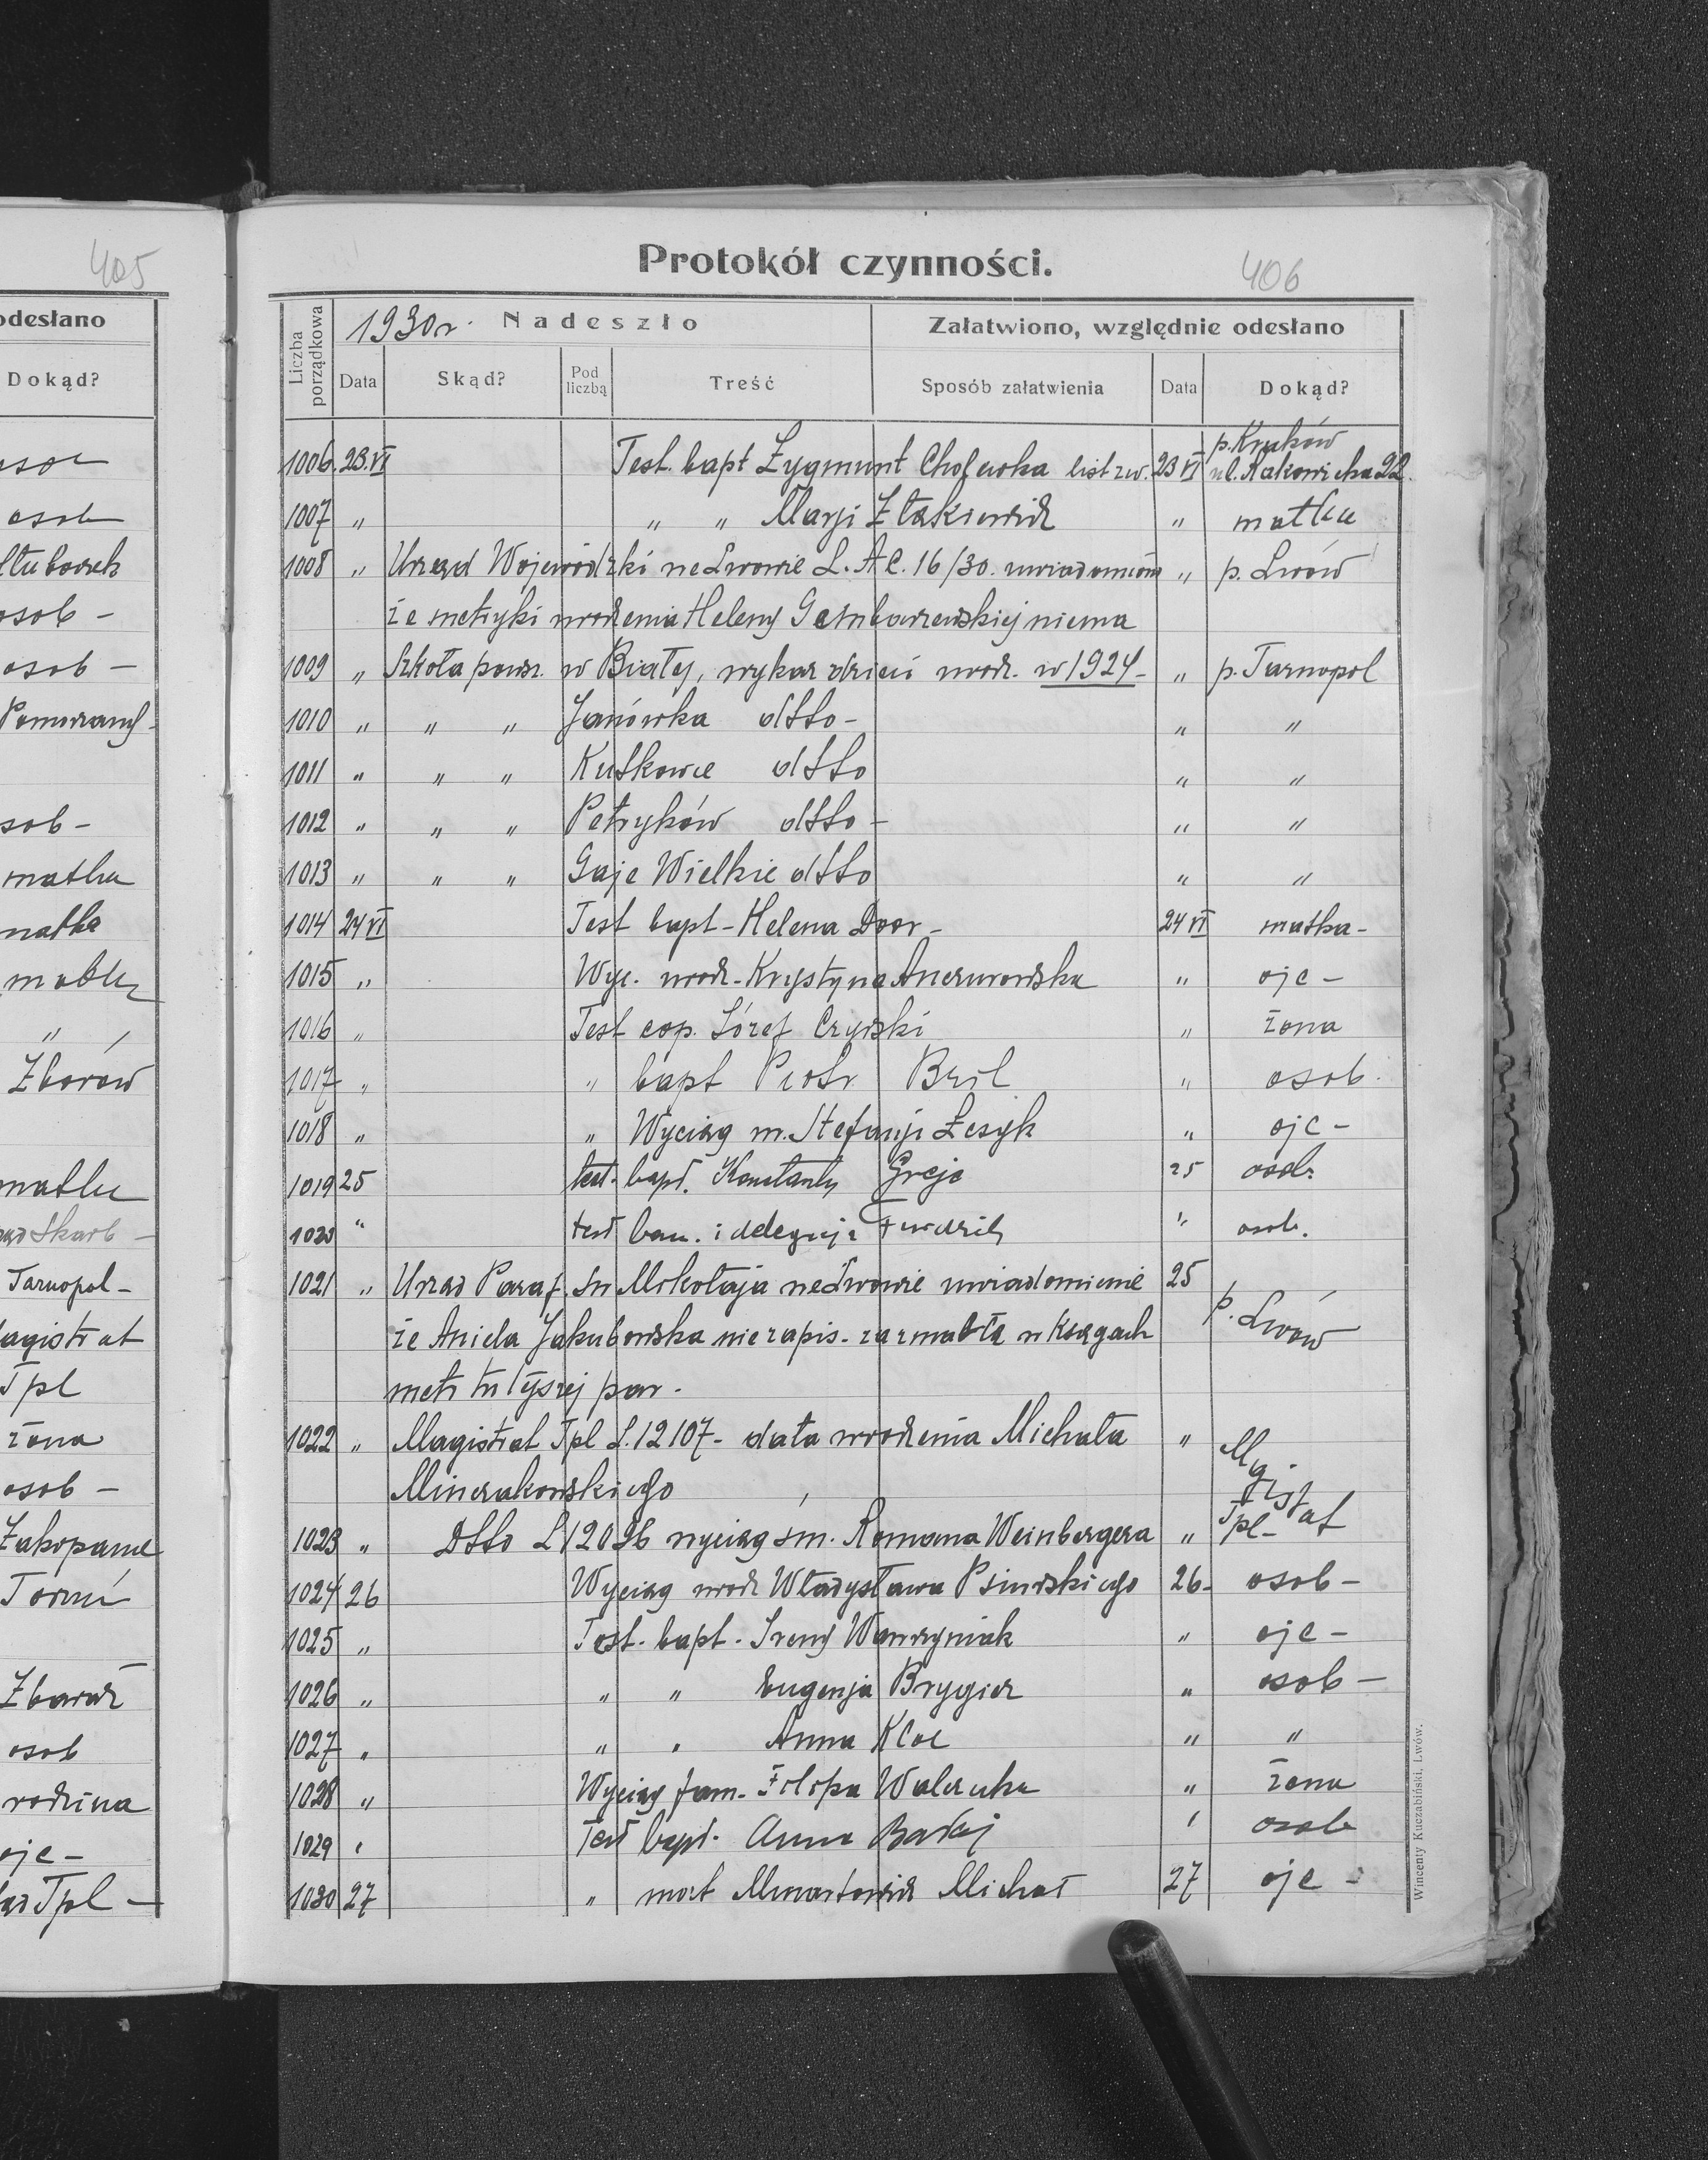 405
odesłano
Dokąd?
osob
osob -
osob -
sob -
matka
matka
"
Zborów
matka
Skarb -
Tarnopol -
agistrat
Tpl
żona
osob -
Zakopane
Toruń
Zbaraż
osob
rodzina
ojc -
Tpl -
Protokół czynności.
406
Liczba porządkowa
1930 r. Nadeszło
Załatwiono, względnie odesłano
Data Skąd? Pod liczbą Treść Sposób załatwienia Data Dokąd?
p. Kraków
1006 23.VI Test. bapt Zygmunt list zw. 23 VI ul. Rakowicka 22.
1007 " " " Marji " matka
1008 " Urząd Wojewódzki we Lwowie L. AC. 16/30. uwiadomiono " p. Lwów
że metryki urodzenia Heleny niema
1009 " Szkoła powsz. w Białej, wykaz dzieci urodz. w 1924 - " p. Tarnopol
1010 " " " Janówka dtto - " "
1011 " " " Kutkowce dtto " "
1012 " " " Petryków dtto - " "
1013 " " " Gaje Wielkie dtto " "
1014 24 VI Test bapt - Helena Dvor - 24 VI matka -
1015 " Wyc. urodz - Krystyna " ojc -
1016 " Test cop. Józef Czyński " żona
1017 " " bapt Piotr " osob.
1018 " " Wyciąg m. Stefanji Łesyk " ojc -
1019 25 test. bapt. Konstanty Greja 25 osob.
1020 " test ban. i delegacja " osob.
1021 " Urząd Paraf. św Mikołaja we Lwowie uwiadomienie 25
że Aniela Jakubowska nie zapis - za zmarłą w Księgach p. Lwów
metr tutejszej par.
1022 " Magistrat Tpl L. 12107 - data urodzenia Michała " Magistrat
Minczakowskiego
1023 " Dtto L 12096 wyciąg śm. Romana Weinbergera " Tpl -
1024 26 Wyciąg urodz Władysława 26 - osob -
1025 " Test. bapt. Ireny Wawrzyniak " ojc -
1026 " " " Eugenja Brygier " osob -
1027 " " " Anna Kloc " "
1028 " Wyciąg fam. Filipa Walczuka " żona
1029 " Test bapt. Anna " osob
1030 27 " mort Michał 27 ojc -
Wincenty Kuczabiński, Lwów.